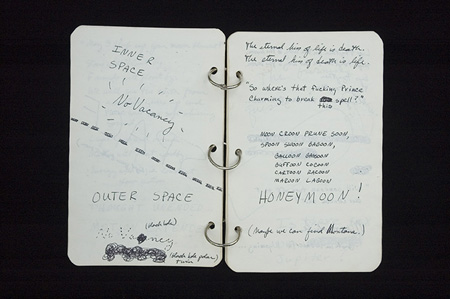 INNER
SPACE
No Vacancy
OUTER SPACE
(black hole)
No Vacancy
(black hole poker
twin
The eternal kiss of life is death.
The eternal kiss of death is life.
"So where's that fucking Prince
Charming to break spell?"
this
MOON CROON PRUNE SOON,
SPOON SWOON BABOON,
BALLOON BASSOON
BUFFOON COCOON
CARTOON RACOON
MAROON LAGOON
HONEYMOON!
(Maybe we can find Montana.)